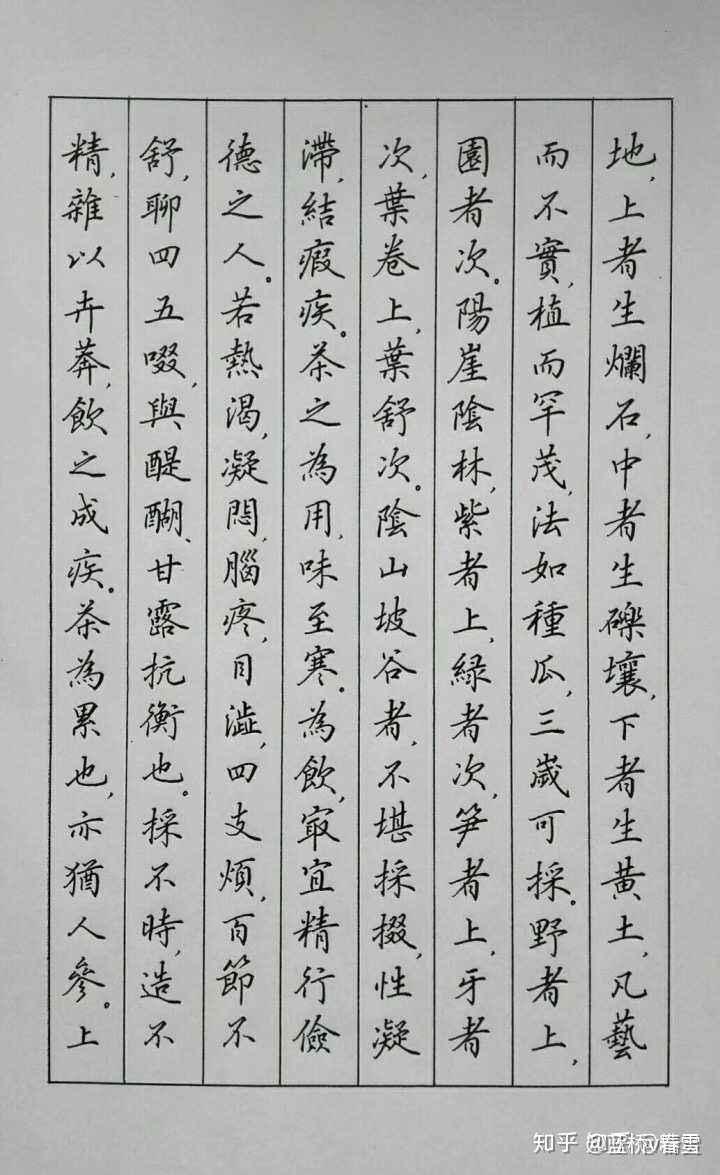 地，上者生爛石，中者生礫壤，下者生黄土，凡藝
而不實，植而罕茂，法如種瓜，三歲可採。野者上，
園者次。陽崖陰林，紫者上，緑者次，笋者上，牙者
次，葉卷上，葉舒次。陰山坡谷者，不堪採掇，性凝
滯，結瘕疾。茶之為用，味至寒。為飲，冣宜精行儉
德之人。若熱渴，凝悶，腦疼，目澁，四支煩，百節不
舒，聊四五啜，與醍醐、甘露抗衡也。採不時，造不
精，雜以卉莽，飲之成疾。茶為累也，亦猶人參。上
知乎 @蓝桥春雪